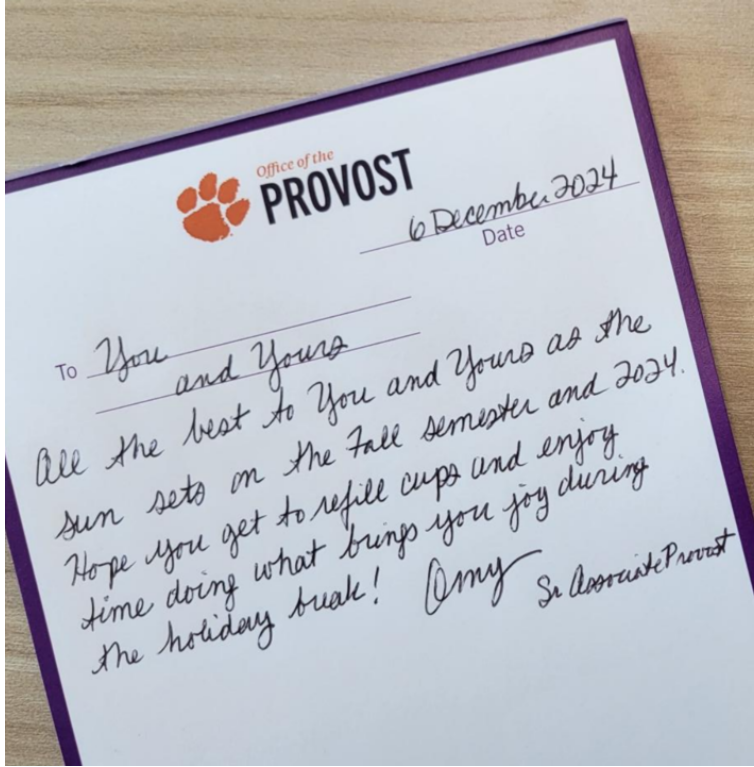 Office of the
PROVOST
6 December 2024
Date
To You
and Yours
All the best to You and Yours as the
sun sets on the Fall semester and 2024.
Hope you get to refill cups and enjoy
time doing what brings you joy during
the holiday break! Amy Sr Associate Provost